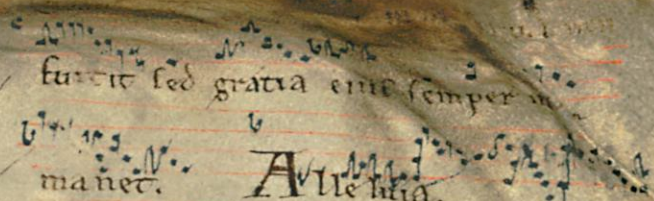 fuit sed gratia eius semper in
manet. Alleluia.